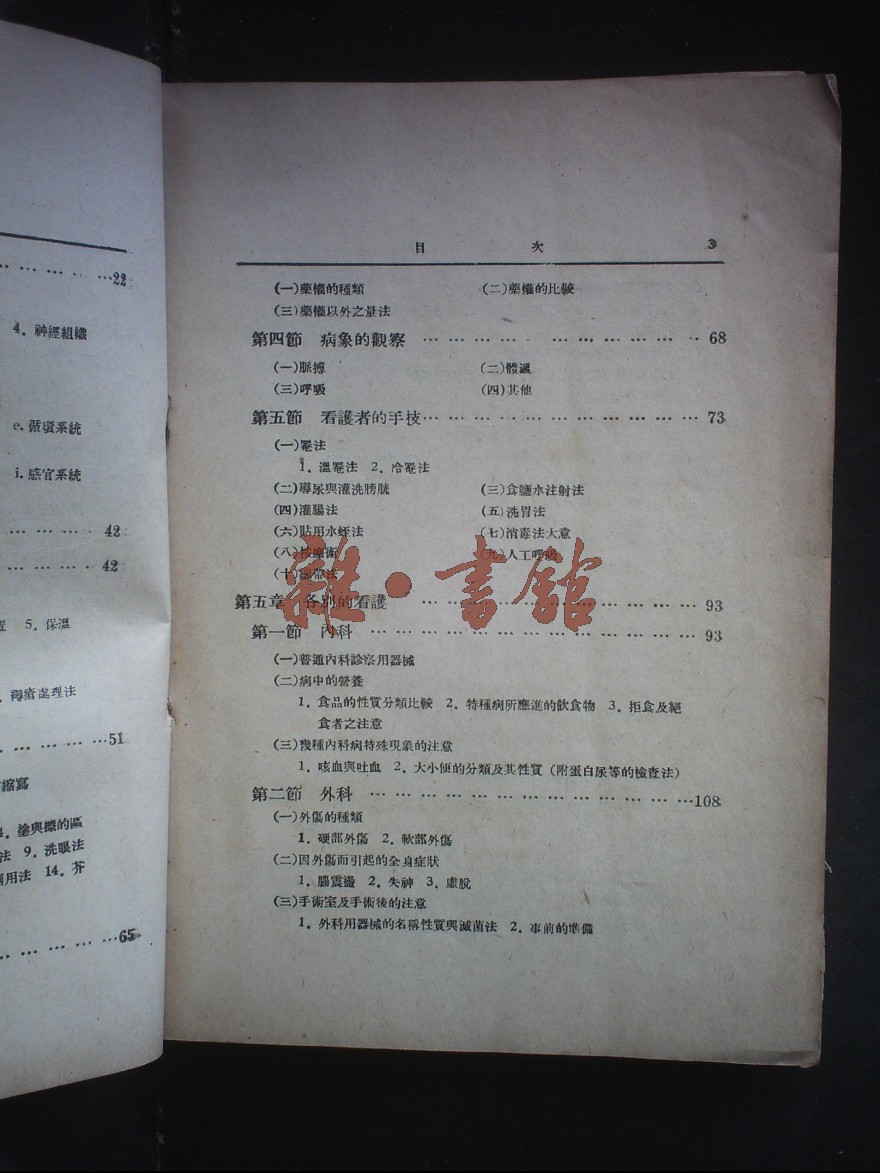 22
4. 神經組織
e. 循環系統
i. 感官系統
42
42
5. 保溫
褥瘡處理法
51
縮寫
塗與擦的區
法 9. 洗眼法
用法 14. 芥
65
目 次 3
(一)藥權的種類 (二)藥權的比較
(三)藥權以外之量法
第四節 病象的觀察 … … … … … … … … … … 68
(一)脈搏 (二)體溫
(三)呼吸 (四)其他
第五節 看護者的手技… … … … … … … … … … 73
(一)罨法
1. 溫罨法 2. 冷罨法
(二)導尿與灌洗膀胱 (三)食鹽水注射法
(四)灌腸法 (五)洗胃法
(六)貼用水蛭法 (七)消毒法大意
(八)按摩術 (九)人工呼吸
(十)繃帶法
雜·書館
第五章 各別的看護 … … … … … … … … … … 93
第一節 內科 … … … … … … … … … … … … 93
(一)普通內科診察用器械
(二)病中的營養
1. 食品的性質分類比較 2. 特種病所應進的飲食物 3. 拒食及絕
食者之注意
(三)幾種內科病特殊現象的注意
1. 咳血與吐血 2. 大小便的分類及其性質(附蛋白尿等的檢查法)
第二節 外科 … … … … … … … … … … … …108
(一)外傷的種類
1. 硬部外傷 2. 軟部外傷
(二)因外傷而引起的全身症狀
1. 腦震盪 2. 失神 3. 虛脫
(三)手術室及手術後的注意
1. 外科用器械的名稱性質與滅菌法 2. 事前的準備